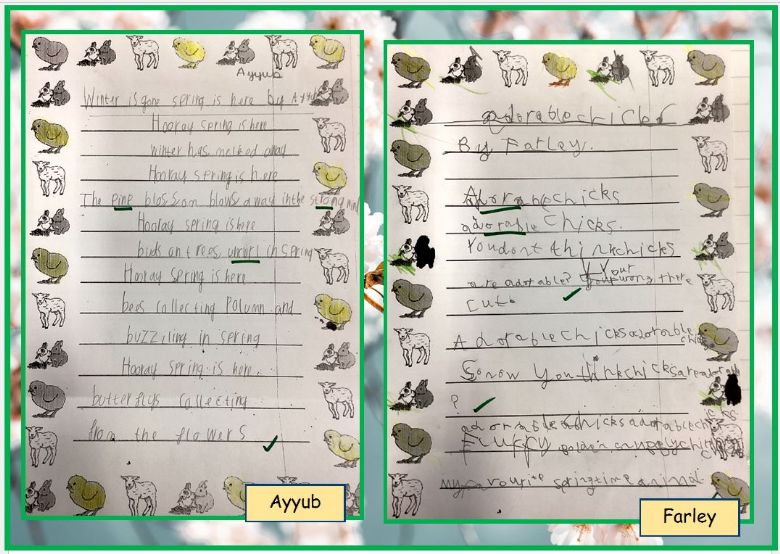 Ayyub
Winter is gone spring is here by Ayyub
Hooray spring is here
winter has melted away
Hooray spring is here
The pine blossom blows away in the strong wind
Hooray spring is here
buds on trees uncurl in spring
Hooray spring is here
bees collecting Polumn and
buzziling in spring
Hooray spring is here
butterflys collecting
from the flowers
Ayyub
adorable chicks
By Farley.
chicks
adorable chicks.
You dont think chicks
are adorable? Your wrong there
cute
Adorable chicks adorable chicks
So now you think chicks are adorable
?
adorable chicks adorable
Fluffy
my favourite springtime animal
Farley